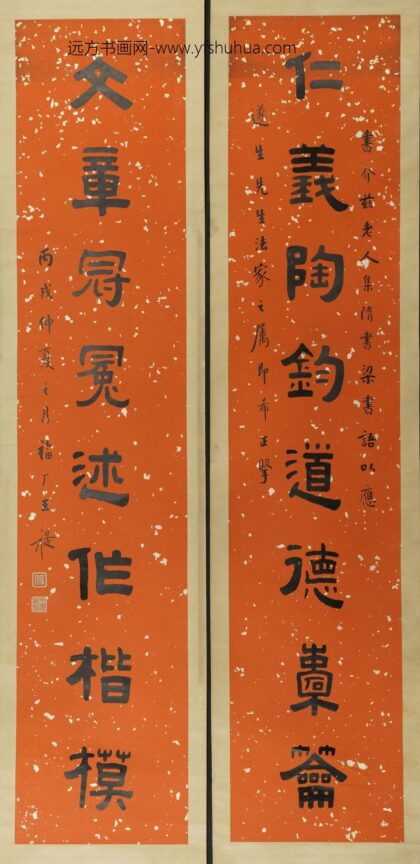 远方书画网-www.yfshuhua.com
書介茲老人集隋書梁書語以應
仁義陶鈞道德橐籥
生先生法家之屬即希正
文章冠冕述作楷模
丙戌仲夏之月福厂王禔